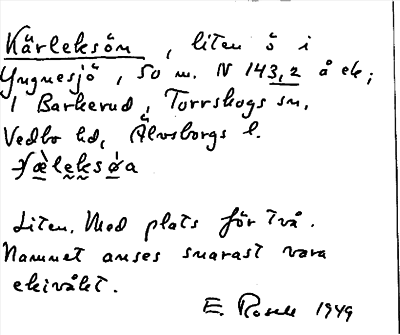 Kärleksön, liten ö i
Yngnesjö, 50 m. N 143,2 å ek;
i Barkerud, Torrskogs sn,
Vedbo hd, Älvsborgs l.
Liten. Med plats för två.
Namnet anses snarast vara
ekivåkt.
E. Rosell 1949